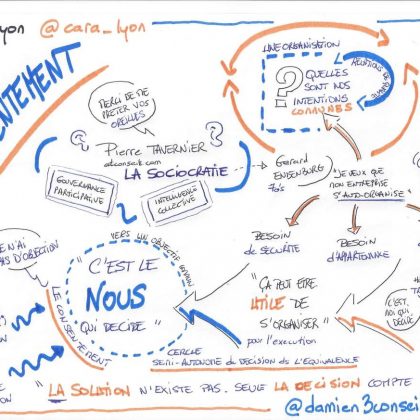 yon @cara_lyon
NTEMENT
MERCI DE ME
PRÊTER VOS
OREILLES
Pierre TAVERNIER
LA SOCIOCRATIE
GOUVERNANCE
PARTICIPATIVE
INTELLIGENCE
COLLECTIVE
UNE ORGANISATION
?
QUELLES
SONT NOS
INTENTIONS
COMMUNES
Gerard
ENDENBURG
"JE VEUX QUE
MON ENTREPRISE
S'AUTO-ORGANISE"
JE N'AI
PAS D'OBJECTION
LE CONSENTEMENT
VERS UN OBJECTIF COMMUN
"C'EST LE
NOUS
QUI DECIDE"
BESOIN
de SÉCURITÉ
BESOIN
D'APPARTENANCE
"ÇA PEUT ÊTRE
UTILE DE
S'ORGANISER"
pour l'exécution
C'EST
MOI QUI
DECIDE
CERCLE
SEMI-AUTONOME de DECISION de L'EQUIVALENCE
"LA SOLUTION N'EXISTE PAS. SEULE LA DECISION COMPTE
@damien3consei